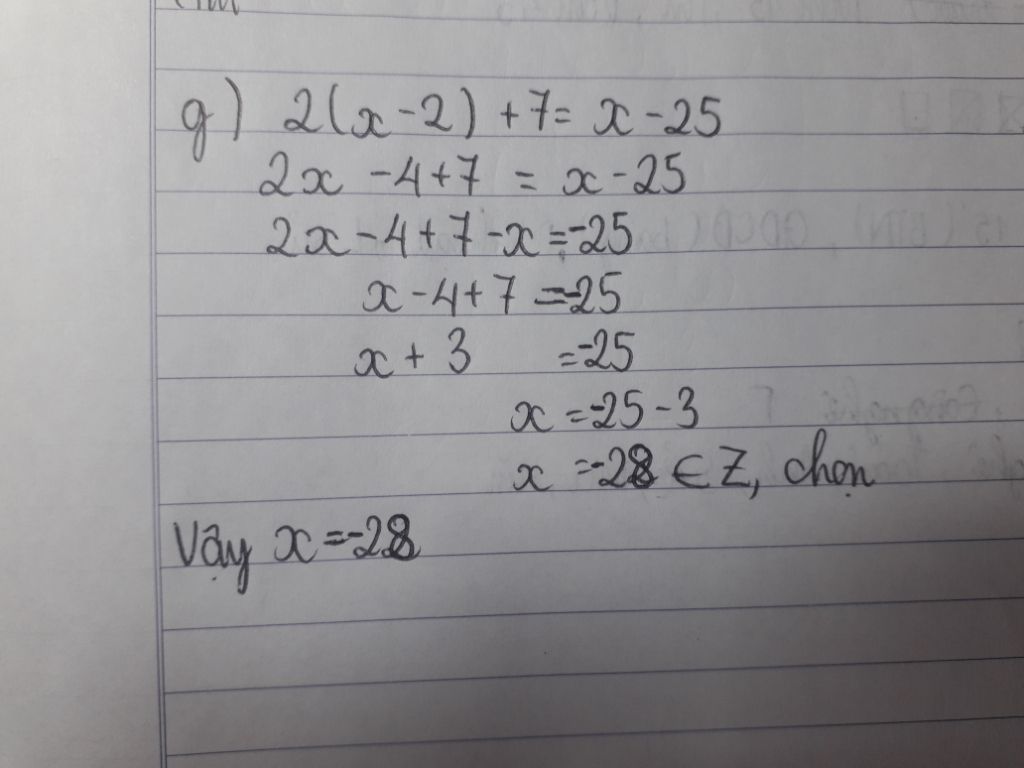 g) 2(x-2) +7= x-25
2x -4+7 = x-25
2x-4+7-x=-25
x-4+7 =-25
x+3 =-25
x =-25-3
x =-28 ∈ Z, chọn
Vậy x=-28